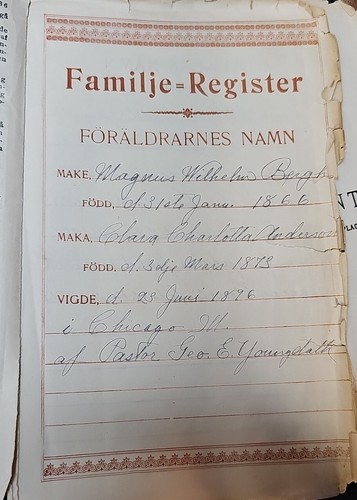 Familje=Register
FÖRÄLDRARNES NAMN
MAKE, Magnus Wilhelm Bergh
FÖDD, d. 31ste Janu 1866
MAKA, Clara Charlotta Anderson
FÖDD, d. 3dje Mars 1873
VIGDE, d. 23 Juni 1896
i Chicago Ill.
af Pastor Geo. E. Youngdahl